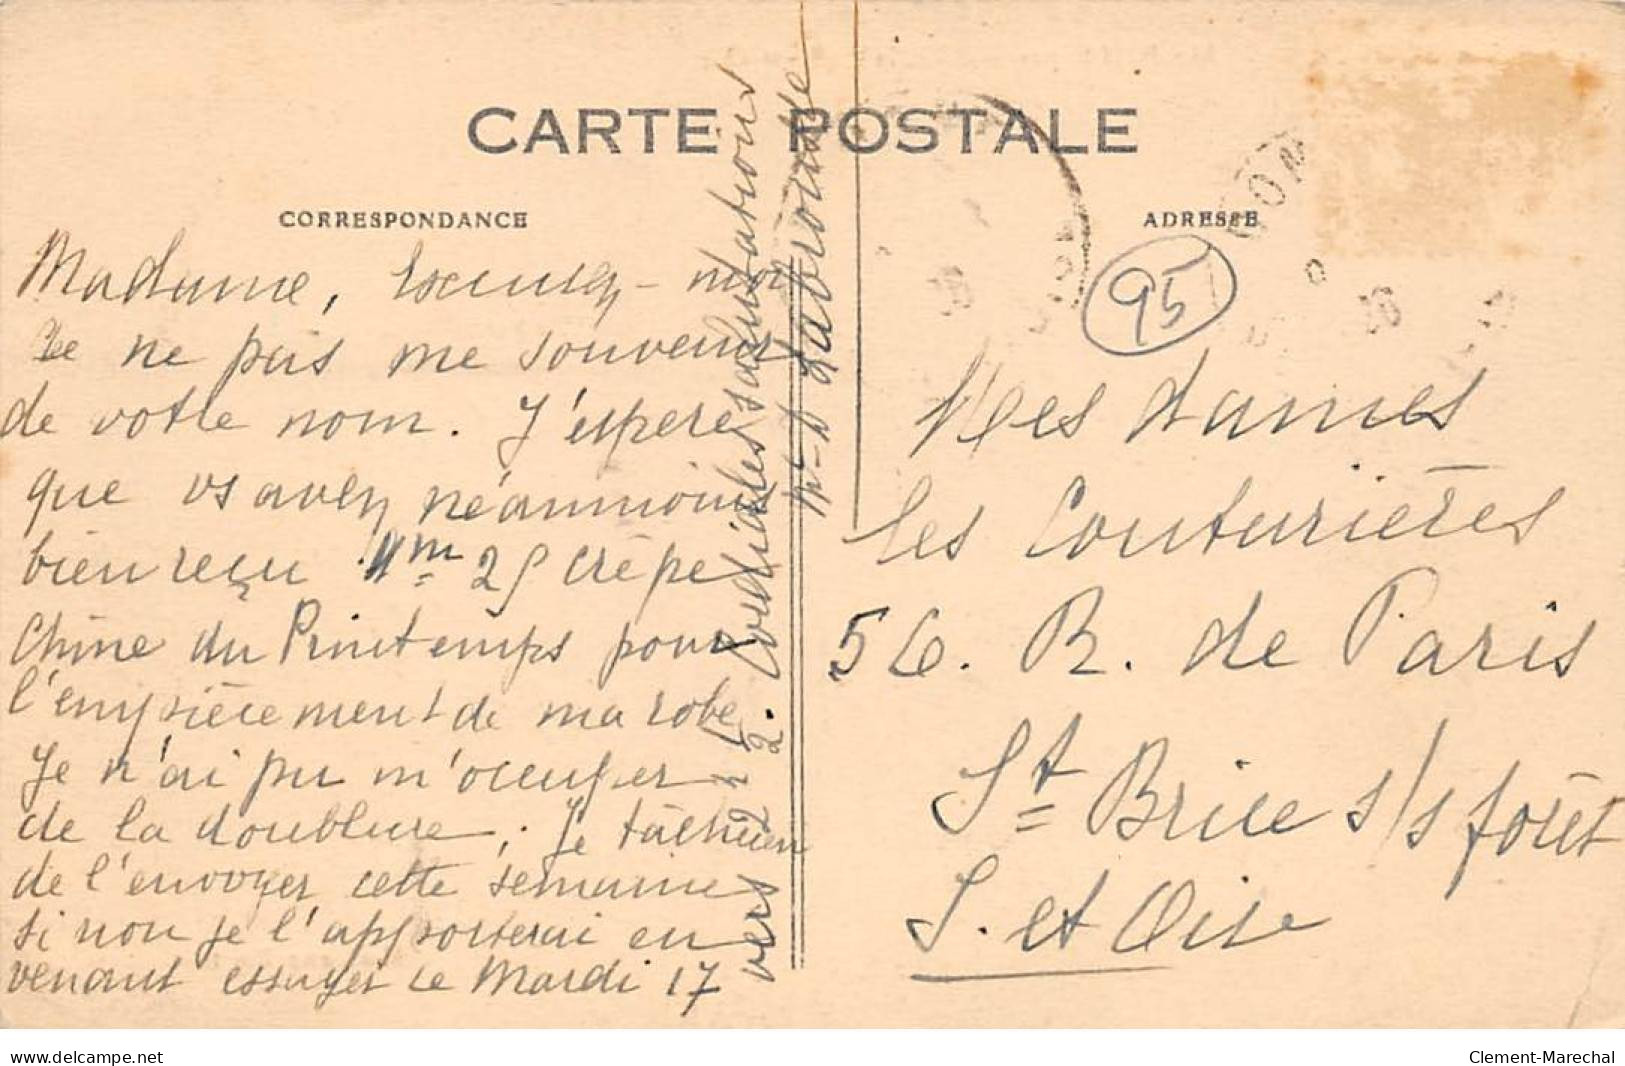 CARTE POSTALE
CORRESPONDANCE
Madame, Excusez-moi
Je ne puis me souvenir
de votre nom. J'espere
que vs avez néanmoins
bien reçu 1m 25 crêpe
Chine du Printemps pour
l'empiècement de ma robe
Je n'ai pu m'occuper
de la doublure. Je tâcherai
de l'envoyer cette semaine
si non je l'apporterai en
venant essayer le Mardi 17
vers 2h 2. Cordiales salutations
ADRESSE
95
Mesdames
les Couturières
56. R. de Paris
St Brice s/s forêt
S. et Oise
www.delcampe.net
Clement-Marechal